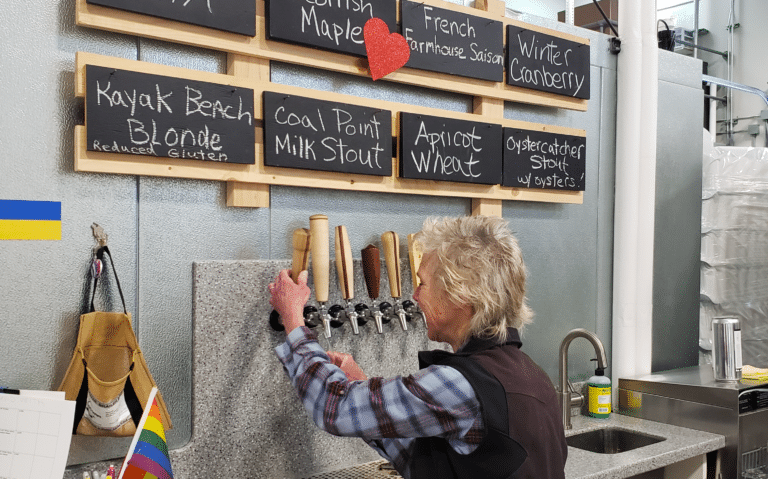 Maple
French
Farmhouse Saison
Winter
Cranberry
Kayak Beach
Blonde
Reduced Gluten
Coal Point
Milk Stout
Apricot
Wheat
Oystercatcher
Stout
w/ oysters!